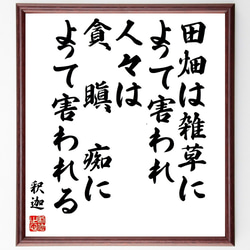 田畑は雑草に
よって害われ
人々は
貪、瞋、痴に
よって害われる
釈迦